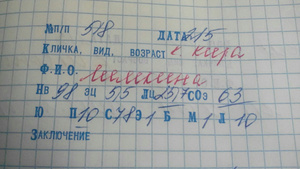 №п/п 518 ДАТА 215
Кличка, вид, возраст к кира
Ф.И.О.
Нв 98 ЭЦ 5,5 ЛЦ 25,7 СОэ 63
Ю П 10 С 78 Э 1 Б М 1 Л 10
Заключение